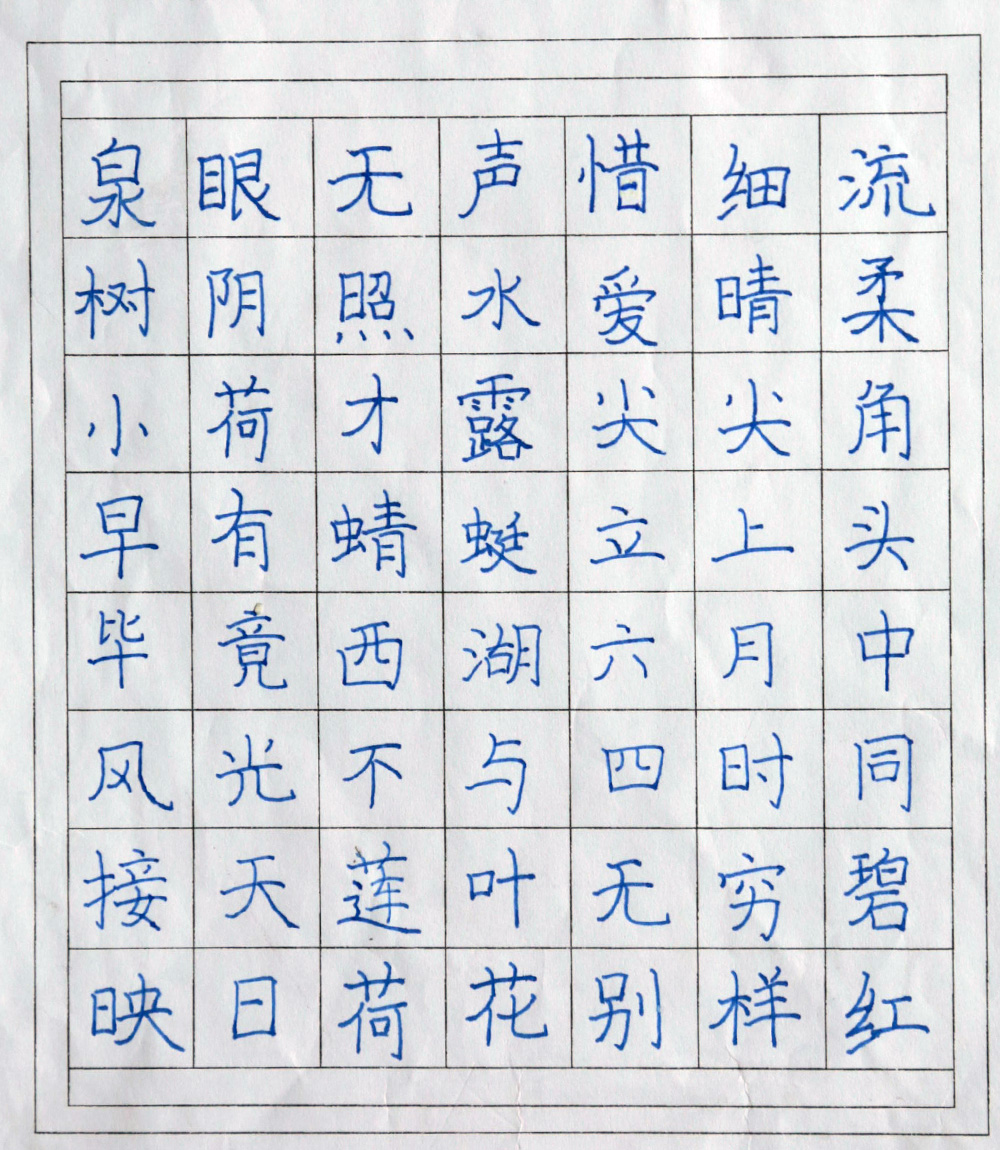 泉眼无声惜细流
树阴照水爱晴柔
小荷才露尖尖角
早有蜻蜓立上头
毕竟西湖六月中
风光不与四时同
接天莲叶无穷碧
映日荷花别样红